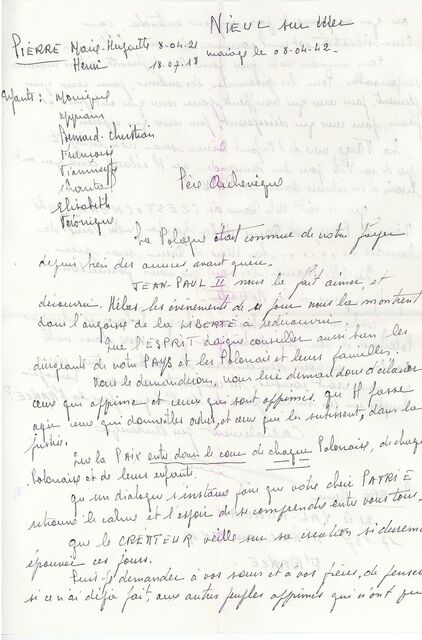 NIEUL sur Mer
PIERRE Marie-Huguette 8-04-21
mariage le 08-04-42-
Henri 18.07.18
Enfants : Monique
Myriam
Bernard-Christian
François
Chantal
Elisabeth
Véronique
Père Archevêque
La Pologne était connue de notre foyer
depuis bien des années avant guerre.
JEAN-PAUL II nous la fait aimer et
découvrir. Hélas les évènements de ce jour nous la montrent
dans l'angoisse de la LIBERTÉ à redécouvrir.
Que l'ESPRIT daigne conseiller aussi bien les
dirigeants de votre PAYS et les Polonais et leurs familles.
Nous le demanderons, nous lui demandons d'éclairer
ceux qui opprime et ceux qui sont opprimés. qu'Il fasse
agir ceux qui donnent les ordres, et ceux qui les subissent, dans la
justice.
Que la PAIX entre dans le cœur de chaque Polonaise, de chaque
Polonais et de leurs enfants.
qu'un dialogue s'instaure pour que votre chère PATRIE
retrouve le calme et l'espoir de se comprendre entre vous tous.
que le CREATEUR veille sur sa création si durement
éprouvée ces jours.
Puis-je demander à vos sœurs et à vos frères, de penser
si ce n'ai déjà fait, aux autres peuples opprimés qui n'ont pas